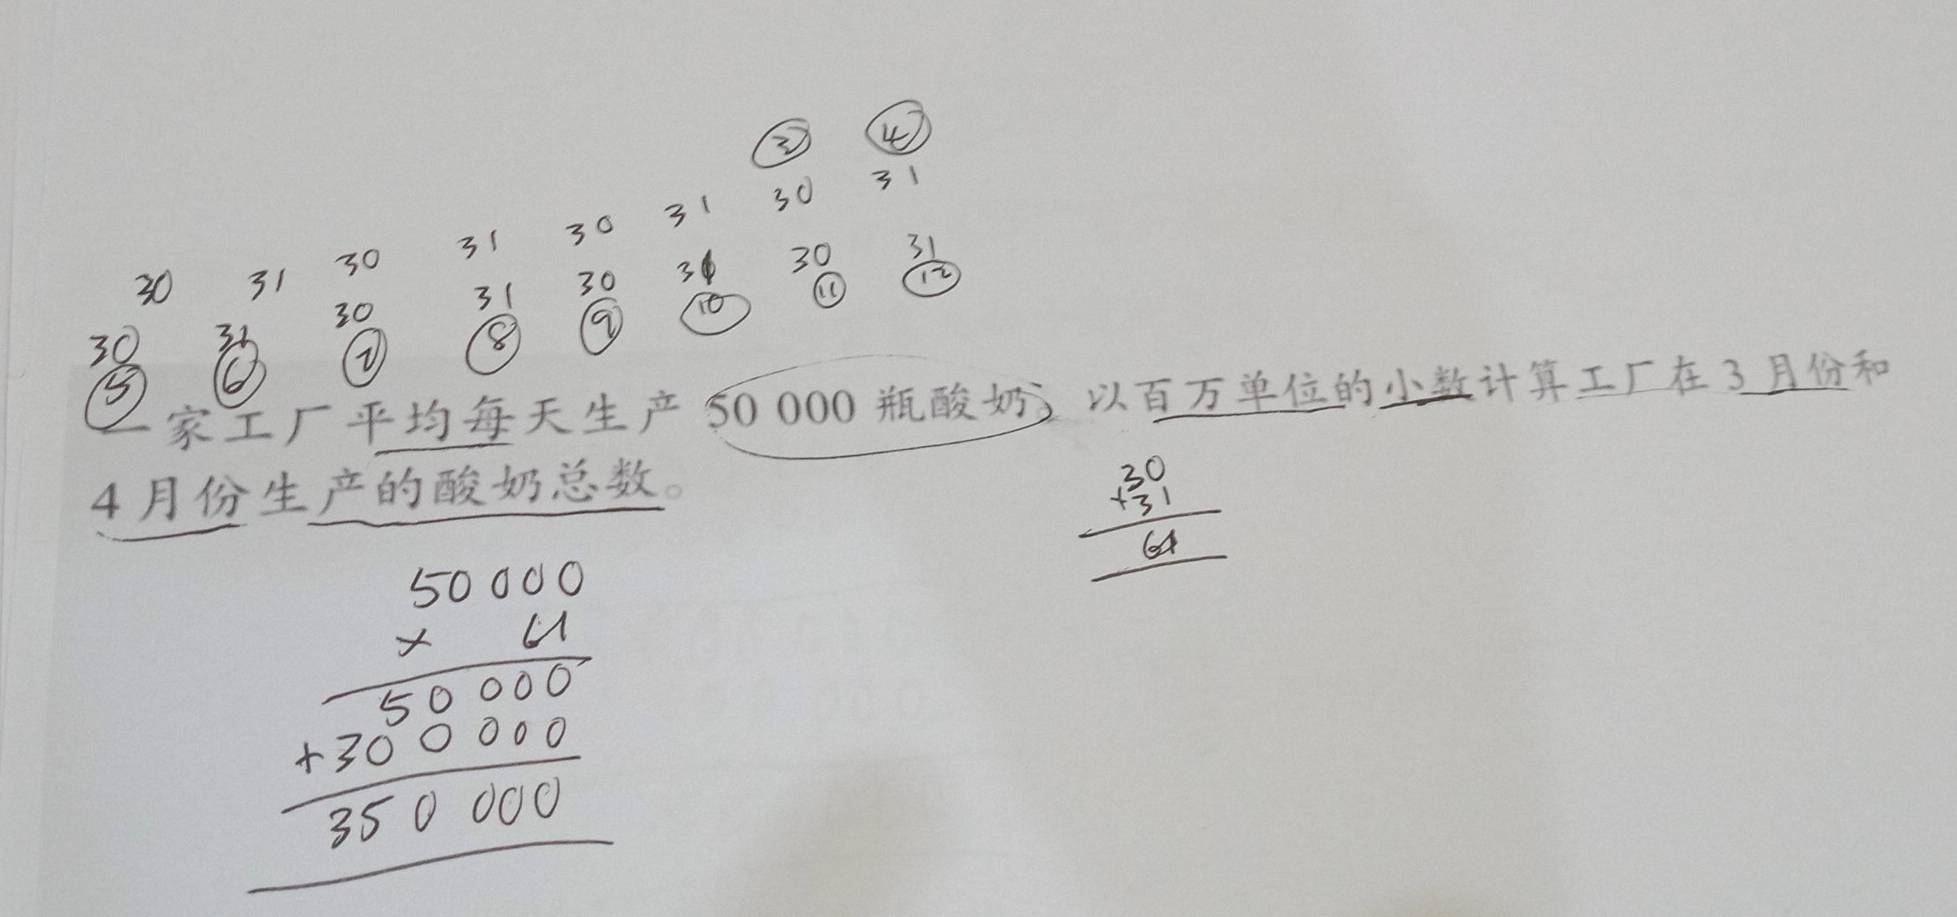 ③ ④
30 31 30 31 30 31 30 31
30 31 30 31 30 31 30 31
⑤ ⑥ ⑦ ⑧ ⑨ ⑩ ⑪ ⑫
一家工厂平均每天生产 50 000 瓶酸奶，以百万单位的小数计算工厂在 3 月份和
4 月份生产的酸奶总数。
30
+31
61
50 000
× 61
50 000
+300 000
350 000